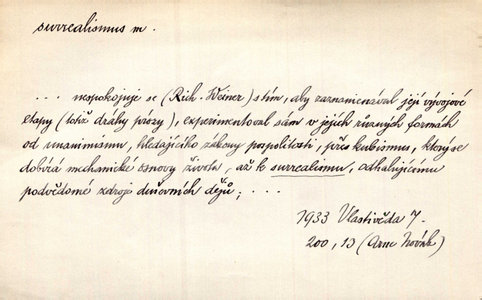 surrealismus m.
... nespokojuje se (Rich. Weiner) s tím, aby zaznamenával její vývojové
etapy (totiž dráhy prózy), experimentoval sám v jejích různých formách
od unanimismu, hledajícího zákony pospolitosti, přes kubismus, který se
dobírá mechanické osnovy života, až k surrealismu, odhalujícímu
podvědomé zdroje duševních dějů; ...
1933 Vlastivěda 7.
200, 1J (Arne Novák)